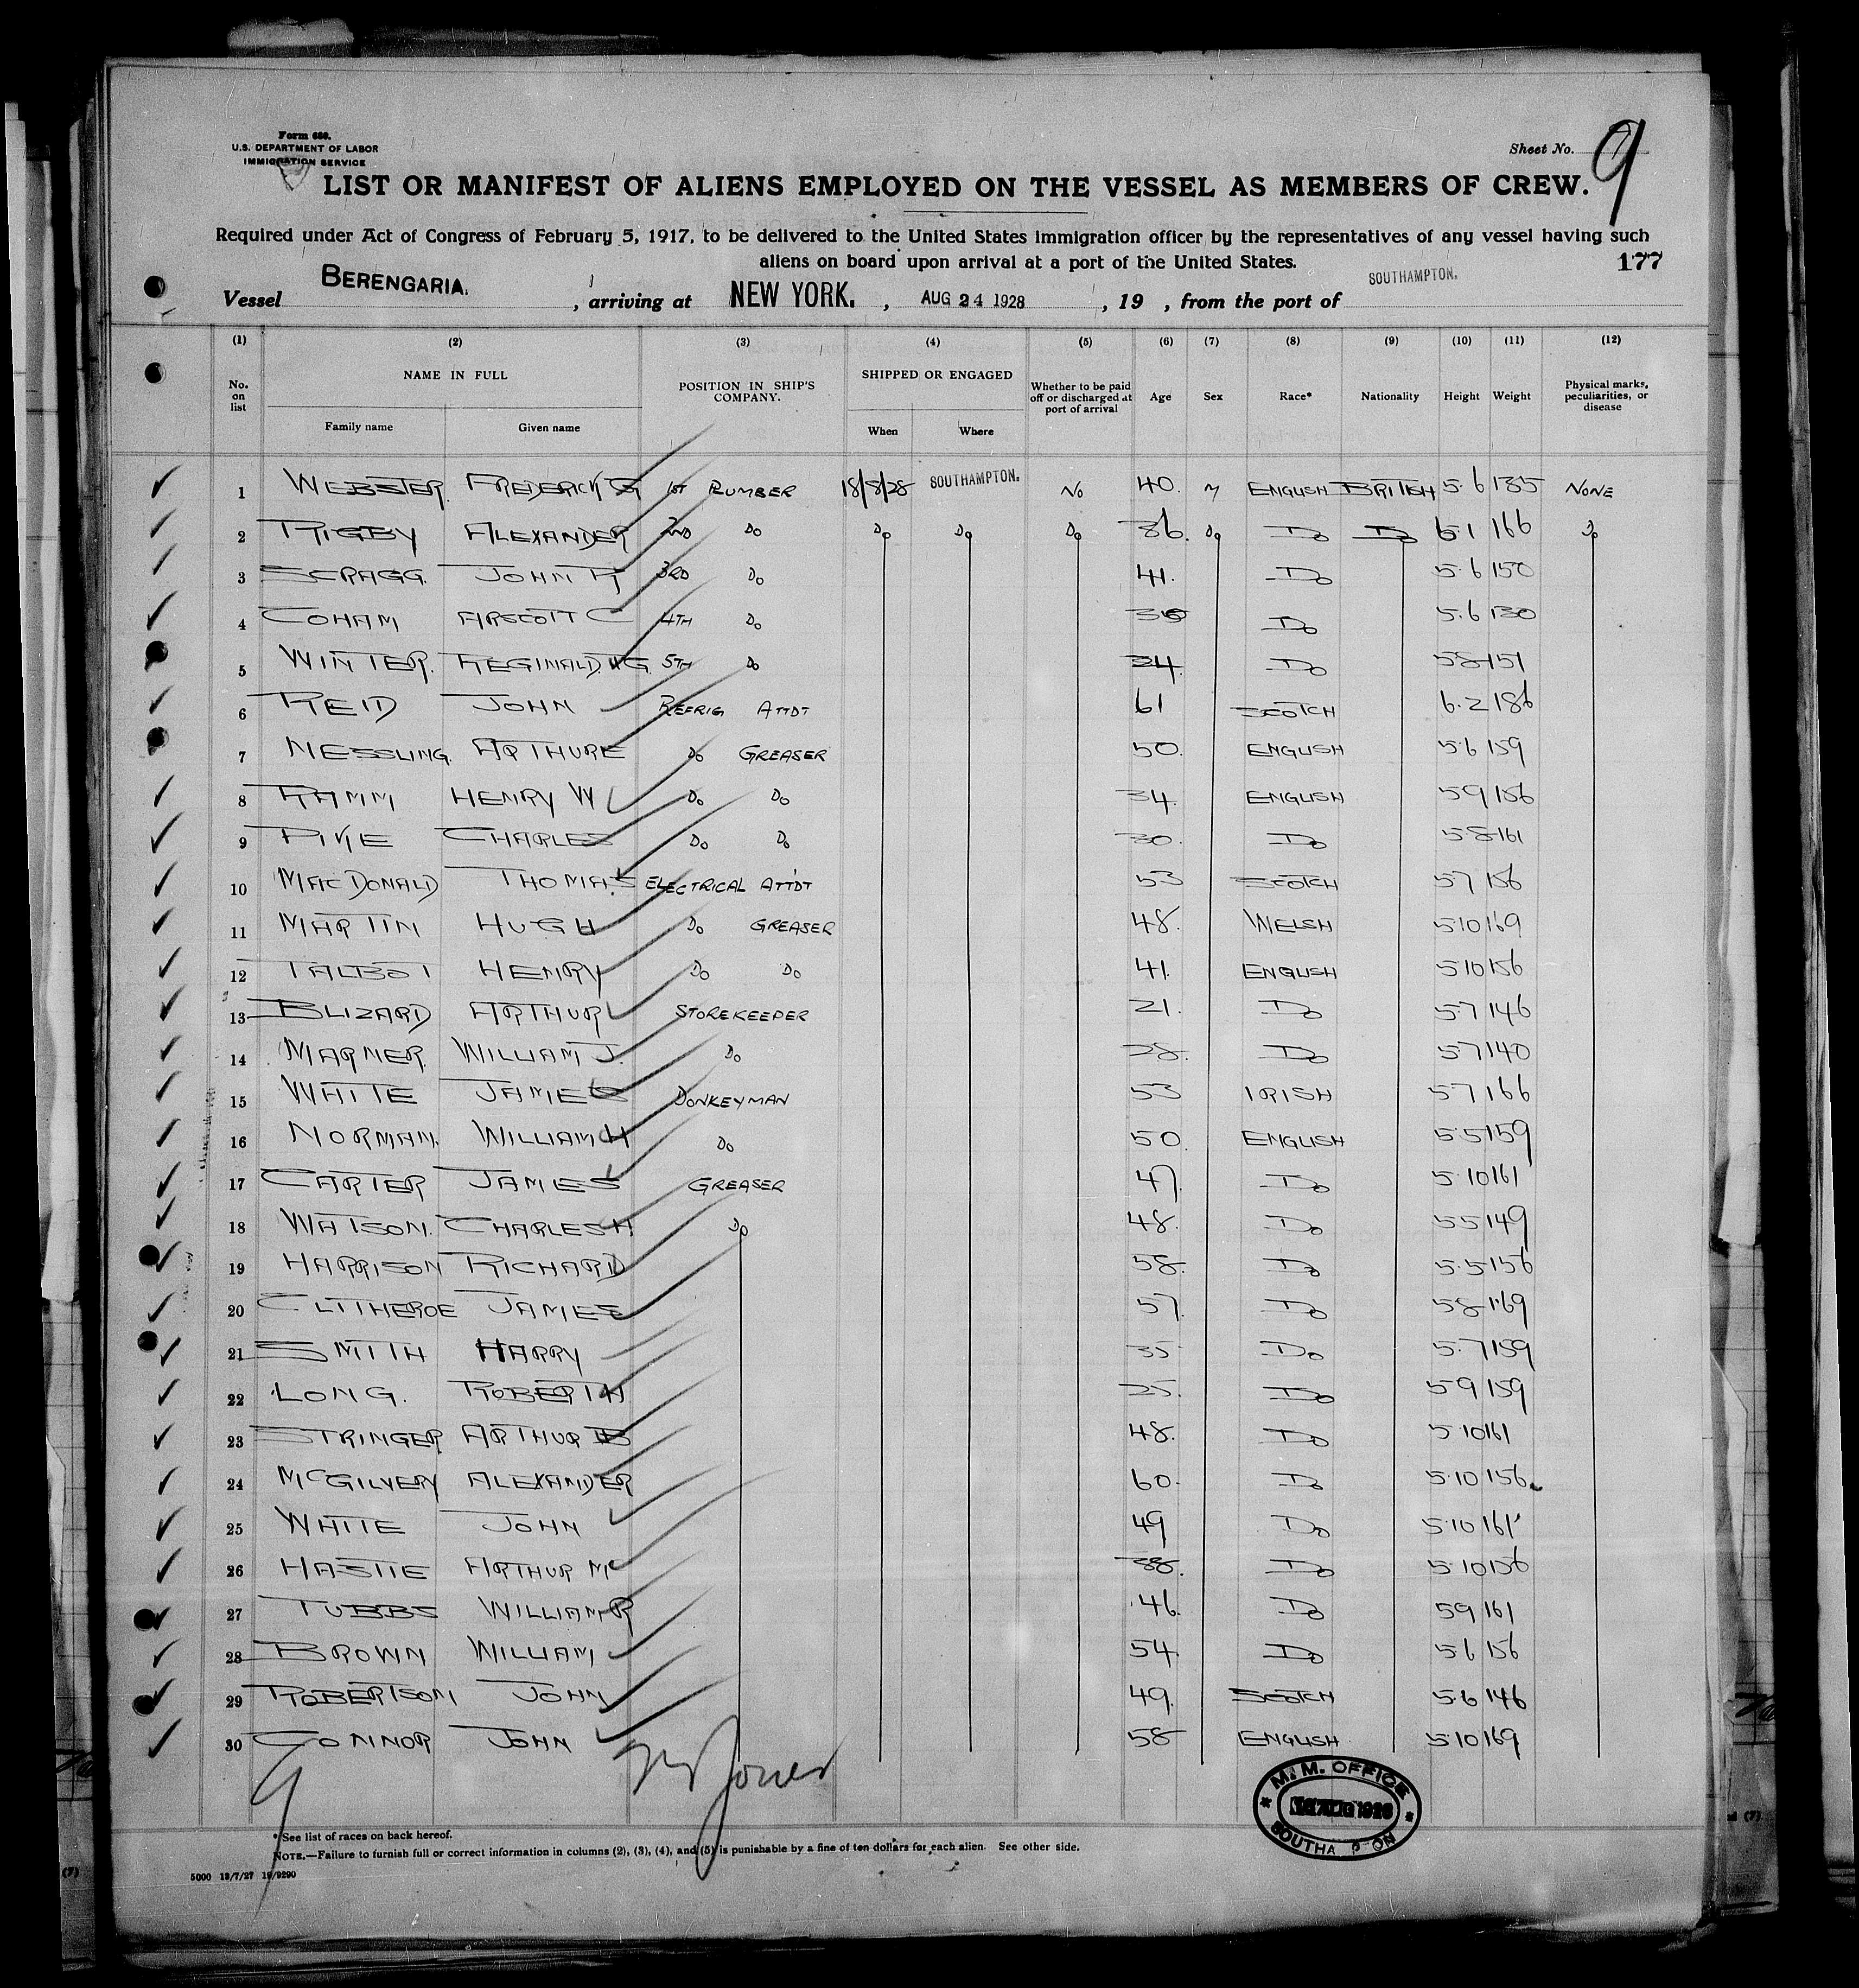 Form 680.
U.S. DEPARTMENT OF LABOR
IMMIGRATION SERVICE
Sheet No. 9
LIST OR MANIFEST OF ALIENS EMPLOYED ON THE VESSEL AS MEMBERS OF CREW.
Required under Act of Congress of February 5, 1917, to be delivered to the United States immigration officer by the representatives of any vessel having such
aliens on board upon arrival at a port of the United States.
177
Vessel BERENGARIA. , arriving at NEW YORK. , AUG 24 1928 , 19 , from the port of SOUTHAMPTON.
(1) (2) (3) (4) (5) (6) (7) (8) (9) (10) (11) (12)
No. on list NAME IN FULL Family name Given name POSITION IN SHIP'S COMPANY. SHIPPED OR ENGAGED When Where Whether to be paid off or discharged at port of arrival Age Sex Race* Nationality Height Weight Physical marks, peculiarities, or disease
1 WEBSTER. FREDERICK 1ST PLUMBER 18/8/28 SOUTHAMPTON. NO 40. M ENGLISH BRITISH 5.6 135 NONE
2 RIGBY ALEXANDER 2ND DO DO DO DO 36. DO DO DO 5.1 166 DO
3 SCRAGG. JOHN R 3RD DO 41. DO 5.6 150
4 COHAM ARSCOTT C 4TH DO DO 5.6 130
5 WINTER. REGINALD. W.G. 5TH DO 34. DO 5 8 151
6 REID JOHN REFRIG ATTDT 61 SCOTCH 6.2 186
7 MESSLING. ARTHUR E DO GREASER 50. ENGLISH 5.6 159
8 RAMM HENRY W DO DO 34. ENGLISH 5 9 156
9 PIKE CHARLES DO DO 30. DO 5.8 161
10 MACDONALD THOMAS ELECTRICAL ATTDT 53 SCOTCH 5 7 156
11 MARTIN HUGH DO GREASER 48. WELSH 5 10 169
12 TALBOT HENRY DO DO 41. ENGLISH 5 10 156
13 BLIZARD ARTHUR STOREKEEPER 21. DO 5.7 146
14 MARNER. WILLIAM J. DO 28. DO 5 7 140
15 WHITE JAMES DONKEYMAN 53 IRISH 5 7 166
16 NORMAN. WILLIAM H DO 50. ENGLISH 5.5 159
17 CARTER JAMES GREASER 47. DO 5.10 161
18 WATSON. CHARLES H DO 48. DO 5 5 149
19 HARRISON RICHARD 58. DO 5.5 156
20 CLITHEROE JAMES 57. DO 5 8 169
21 SMITH HARRY 35 DO 5.7 159
22 LONG. ROBERT H 25. DO 5 9 159
23 STRINGER ARTHUR B 48. DO 5.10 161
24 MCGILVERY ALEXANDER 60. DO 5.10 156
25 WHITE JOHN 49 DO 5.10 161
26 HASTIE ARTHUR M 38. DO 5.10 156
27 TUBBS WILLIAM R 46. DO 5 9 161
28 BROWN WILLIAM 54. DO 5 6 156
29 ROBERTSON JOHN 49. SCOTCH 5.6 146
30 CONNOR JOHN 58 ENGLISH 5.10 169
9 Jones
M. M. OFFICE
AUG 1928
SOUTHA P ON
* See list of races on back hereof.
NOTE.—Failure to furnish full or correct information in columns (2), (3), (4), and (5) is punishable by a fine of ten dollars for each alien. See other side.
5000 13/7/27 19/9290